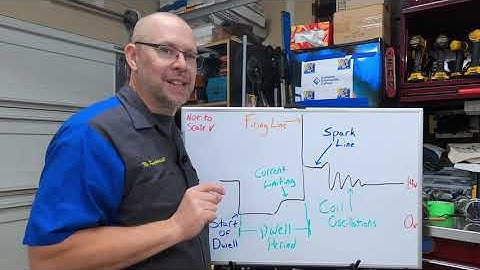 Not to
Scale
Firing Line
Spark
Line
Current
Limiting
Start
of
Dwell
Dwell
Period
Coil
Oscillations
0v